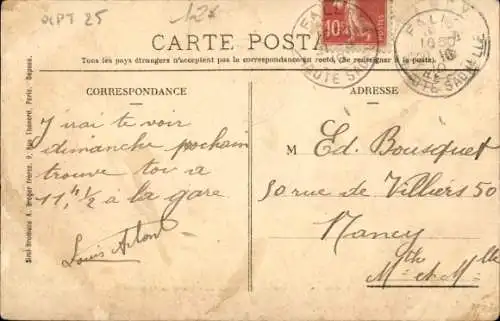 DEPT 25
12 x
10c
CARTE POSTALE
Tous les pays étrangers n'acceptent pas la correspondance au recto, (se renseigner à la poste)
CORRESPONDANCE
J'irai te voir
dimanche prochain
trouve toi a
11h 1/2 à la gare
Louis
ADRESSE
M Ed. Bousquet
50 rue de Villiers 50
Nancy
Mthe et Mlle
HAUTE SAONE